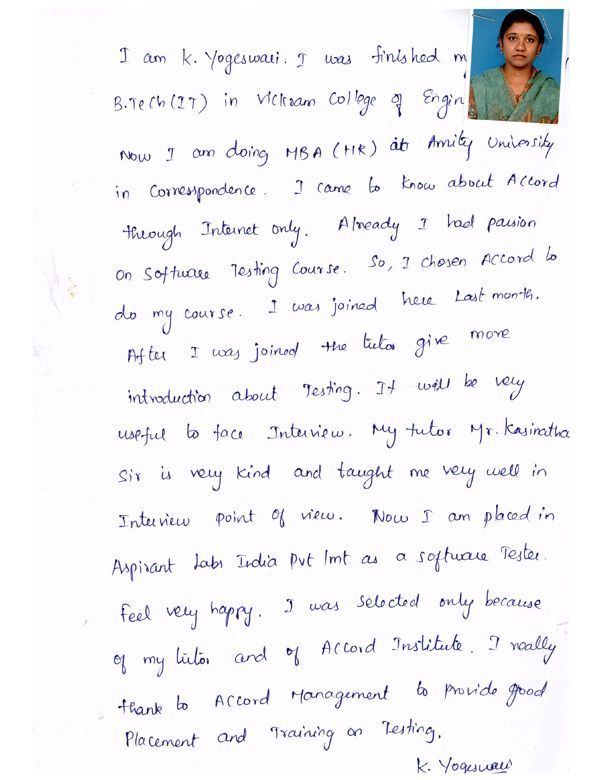 I am K. Yogeswari. I was finished m
B.Tech(IT) in Vickram College of Engin
Now I am doing MBA (HR) at Amity University
in Correspondence. I came to know about Accord
through Internet only. Already I had passion
on Software Testing Course. So, I chosen Accord to
do my course. I was joined here Last month.
After I was joined the tutor give more
introduction about Testing. It will be very
useful to face Interview. My tutor Mr. Kasinatha
Sir is very kind and taught me very well in
Interview point of view. Now I am placed in
Aspirant Labs India Pvt lmt as a software Tester.
Feel very happy. I was Selected only because
of my tutor and of Accord Institute. I really
thank to Accord Management to provide good
Placement and Training on Testing.
K. Yogeswari